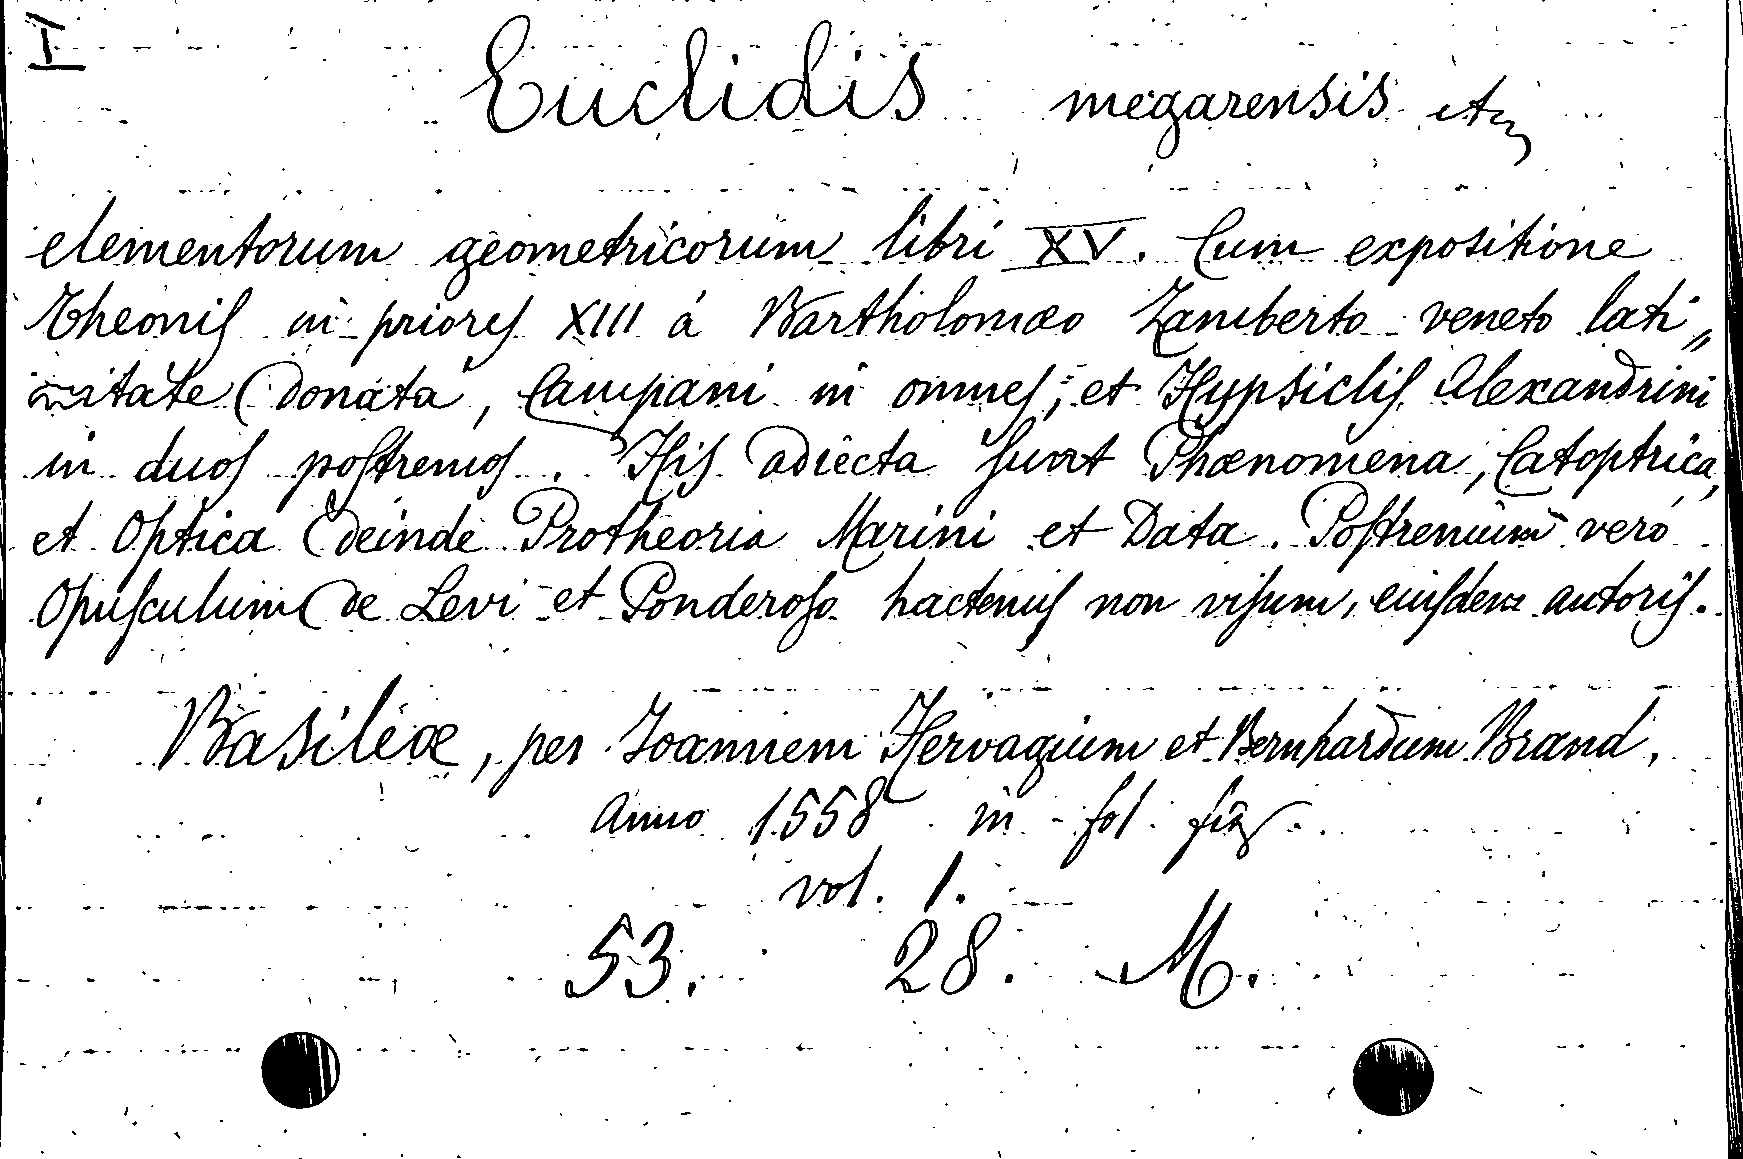 I
Euclidis megarensis
elementorum geometricorum libri XV. Cum expositione
Theonis in priores XIII á Bartholomæo Zamberto veneto lati„
nitate donata, Campani in omnes, et Hypsiclis Alexandrini
in duos postremos. His adiecta sunt Phænomena, Catoptrica,
et Optica deinde Protheoria Marini et Data. Postremum veró
Opusculum de Levi et Ponderoso hactenus non visum, eiusdem autoris.
Basileæ, per Joannem Hervagium et Bernhardum Brand,
Anno 1558 in fol. fig.
vol. 1.
53. 28. M.